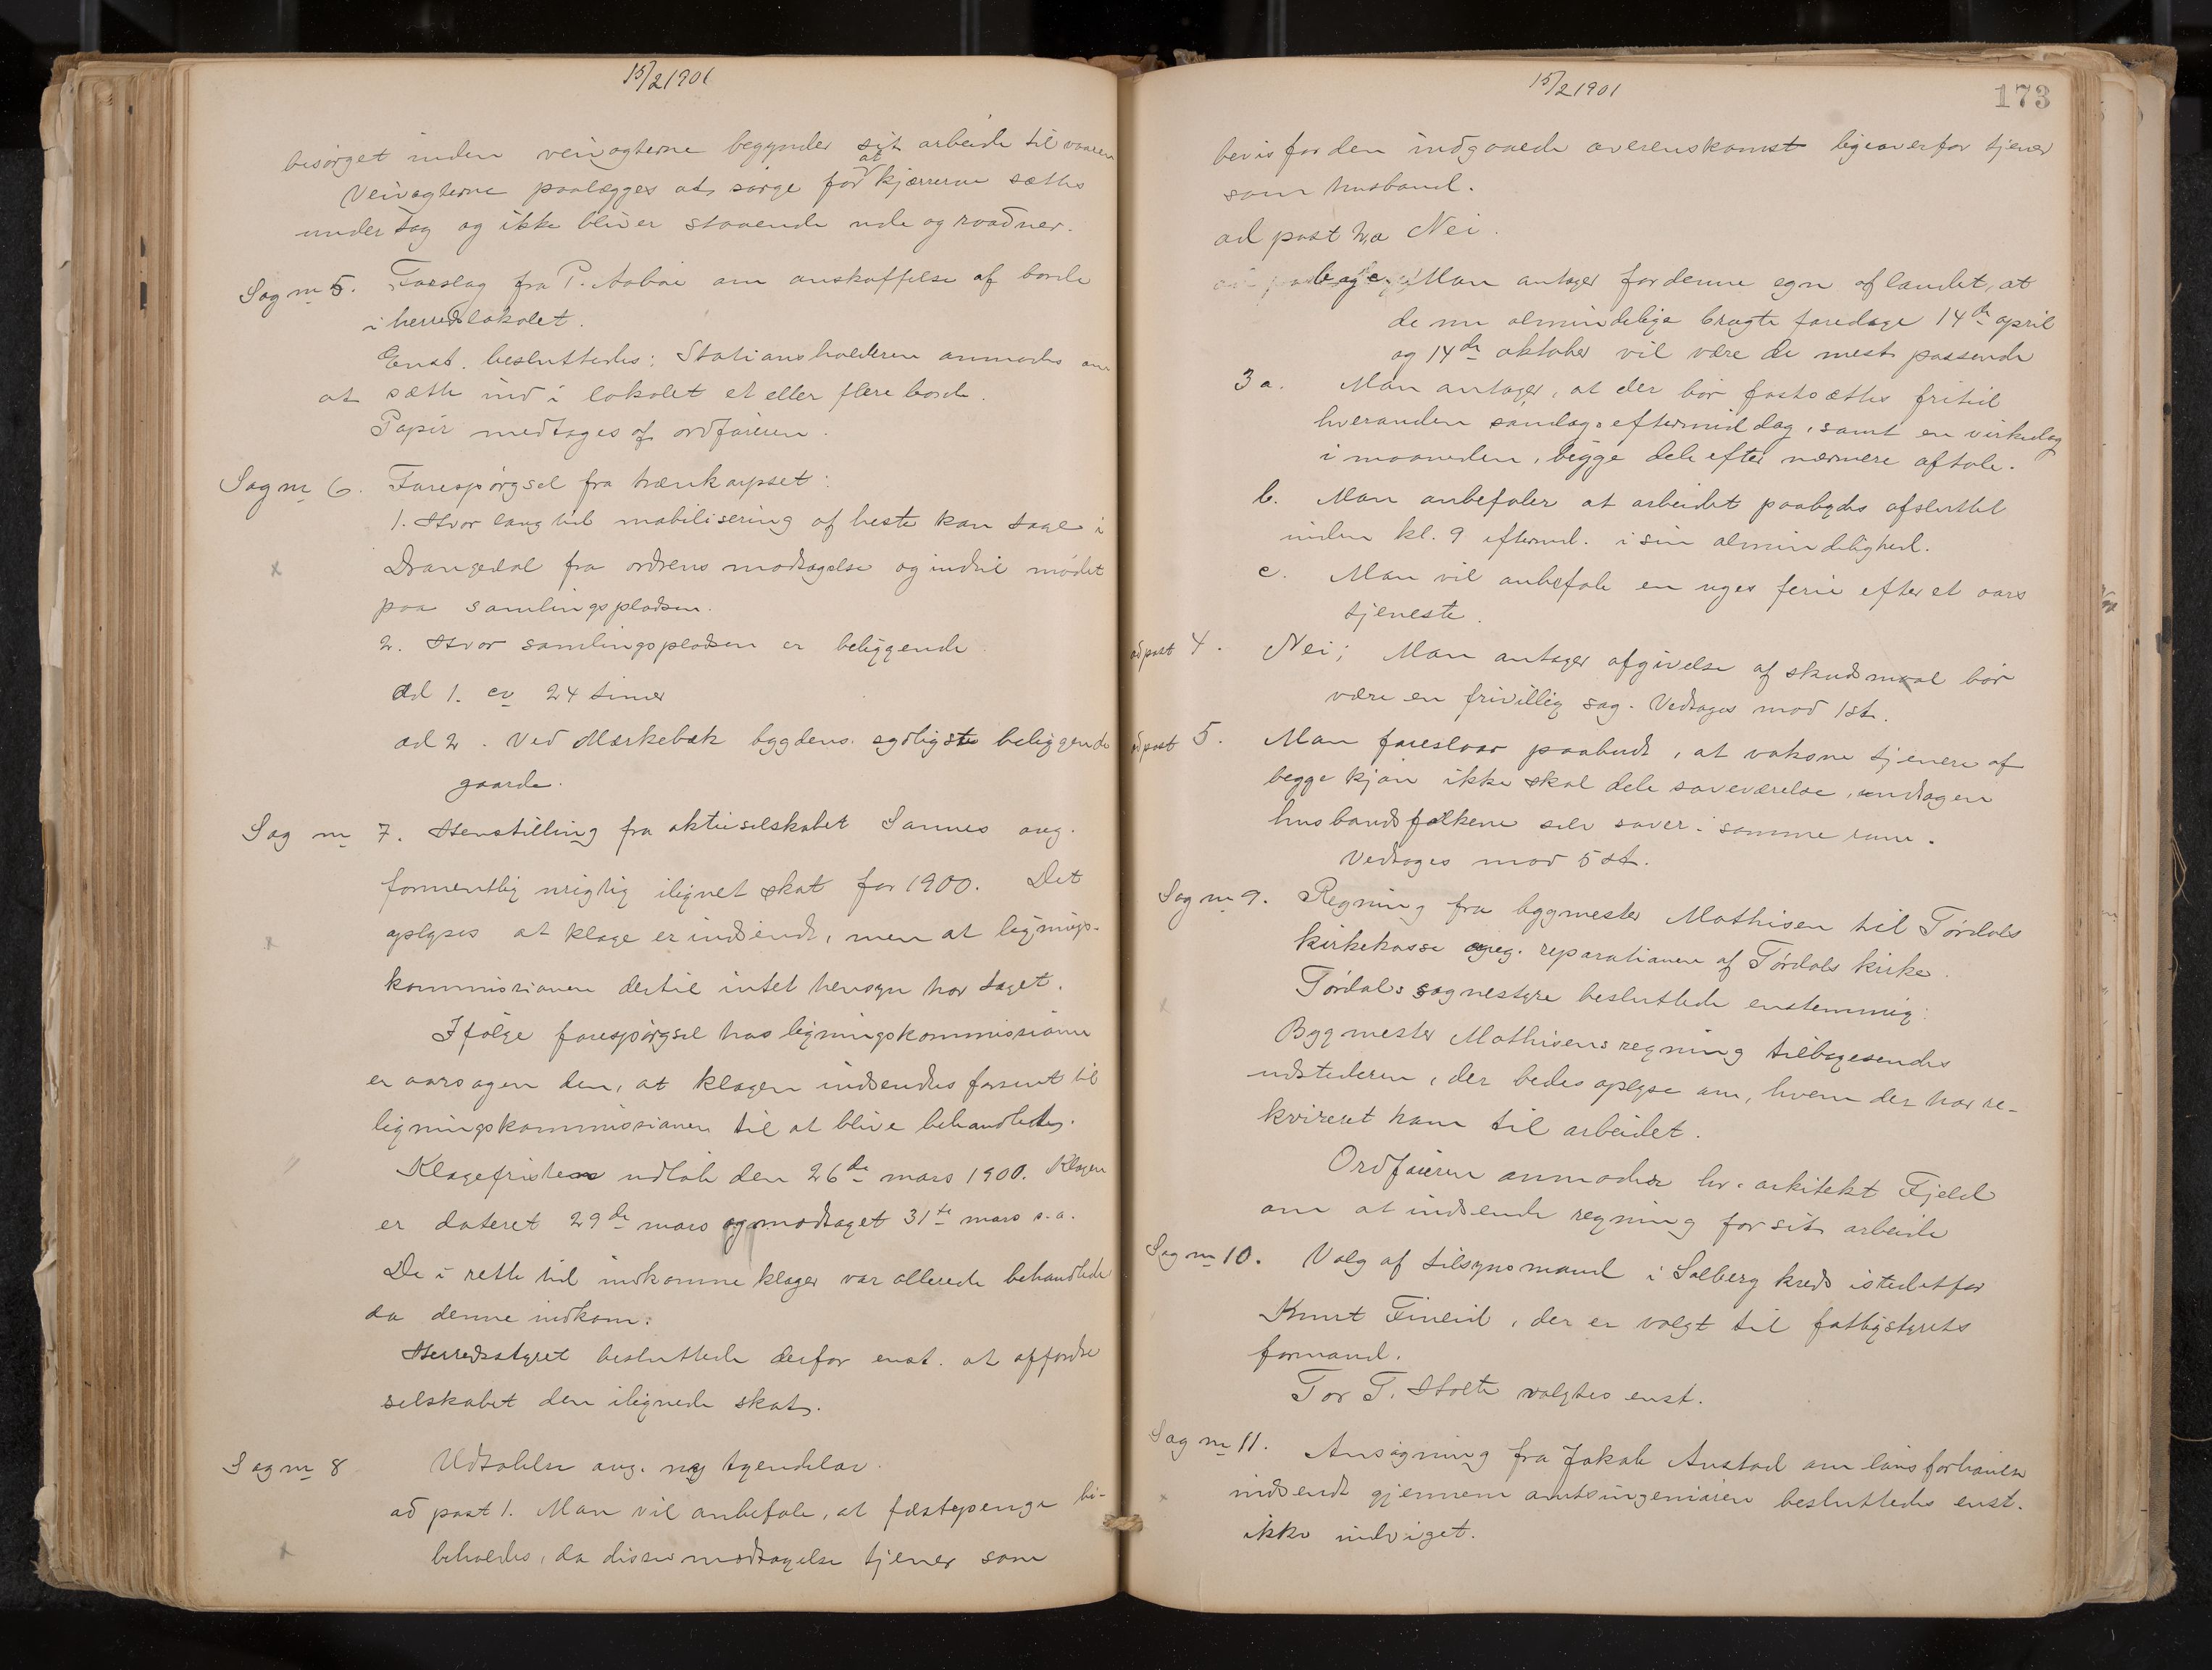 15/2 1901
besørget inden veivogterne begynder sit arbeide til vaaren
Veivogterne paalægges at sørge for at kjærrerne sættes
under tag og ikke bliver staaende ude og raadner.
Sag nr 5. Forslag fra P. Aabøe om anskaffelse af borde
i herredslokalet.
Enst. besluttedes: Stationsholderen anmodes om
at sætte ind i lokalet et eller flere borde.
Papir medtages af ordføreren.
Sag nr 6. Forespørgsel fra trænkorpset:
1. Hvor lang tid mobilisering af heste kan tage i
Drangedal fra ordrens modtagelse og indtil mødet
paa samlingspladsen.
2. Hvor samlingspladsen er beliggende
ad 1. ca 24 timer
ad 2. Ved Merkebæk bygdens sydligste beliggende
gaarde.
Sag nr 7. Henstilling fra aktieselskabet Sannes ang.
formentlig urigtig ilignet skat for 1900. Det
oplyses at klage er indsendt, men at lignings-
kommissionen dertil intet hensyn har taget.
Ifølge forespørgsel hos ligningskommissionen
er aarsagen den, at klagen indsendtes forsent til
ligningskommissionen til at blive behandlet.
Klagefristen udløb den 26de mars 1900. Klagen
er dateret 29de mars og modtaget 31te mars s.a.
De i rette tid indkomne klager var allerede behandlede
da denne indkom.
Herredsstyret besluttede derfor enst. at affordre
selskabet den ilignede skat.
Sag nr 8 Udtalelse ang. ny tyendelov.
ad post 1. Man vil anbefale, at fæstepenge bi-
beholdes, da disses modtagelse tjener som
15/2 1901
173
bevis for den indgaaede overenskomst ligeoverfor tjener
som husbond.
ad post 2,a Nei.
b og c, Man antager for denne egn af landet, at
de nu almindelige brugte faredage 14de april
og 14de oktober vil være de mest passende
3 a. Man antager, at der bør fastsættes fritid
hveranden søndags eftermiddag, samt en virkedag
i maaneden, begge dele efter nærmere aftale.
b. Man anbefaler at arbeidet paabydes afsluttet
inden kl. 9 efterm. i sin almindelighed.
c. Man vil anbefale en uges ferie efter et aars
tjeneste.
ad post 4. Nei; Man antager afgivelse af skudsmaal bør
være en frivillig sag. Vedtages mod 1 st.
ad post 5. Man foreslaar paabudt, at voksne tjenere af
begge kjøn ikke skal dele soveværelse, undtagen
husbondsfolkene selv sover i samme rum.
Vedtages mod 5 st.
Sag nr 9. Regning fra bygmester Mathisen til Tørdals
kirkekasse ang. reparationen af Tørdals kirke.
Tørdals sognestyre besluttede enstemmig:
Bygmester Mathisens regning tilbagesendes
udstederen, der bedes oplyse om, hvem der har re-
kvireret ham til arbeidet.
Ordføreren anmoder hr. arkitekt Fjeld
om at indsende regning for sit arbeide
Sag nr 10. Valg af tilsynsmand i Solberg kreds istedetfor
Knut Fineid, der er valgt til fattigstyrets
formand.
Tor T. Holte valgtes enst.
Sag nr 11. Ansøgning fra Jakob Austad om lønsforhøielse
indsendt gjennem amtsingeniøren besluttedes enst.
ikke indvilget.